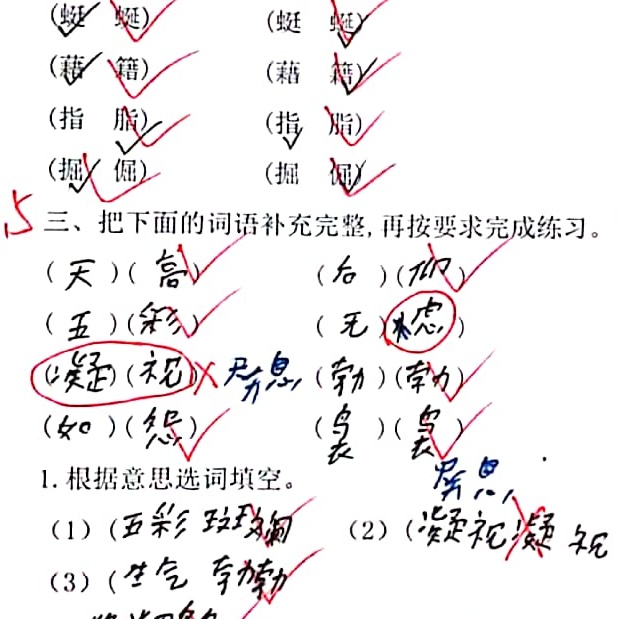 (蜓 蜒) (蜓 蜒)
(藉 籍) (藉 籍)
(指 脂) (指 脂)
(掘 倔) (掘 倔)
5 三、把下面的词语补充完整,再按要求完成练习。
(天)(高) (后)(仰)
(五)(彩) (无)(虑)
(凝)(视) 屏息 (勃)(勃)
(如)(怨) (袅)(袅)
1.根据意思选词填空。 屏息
(1)(五彩 (2)(凝视凝视
(3)(生气 勃勃